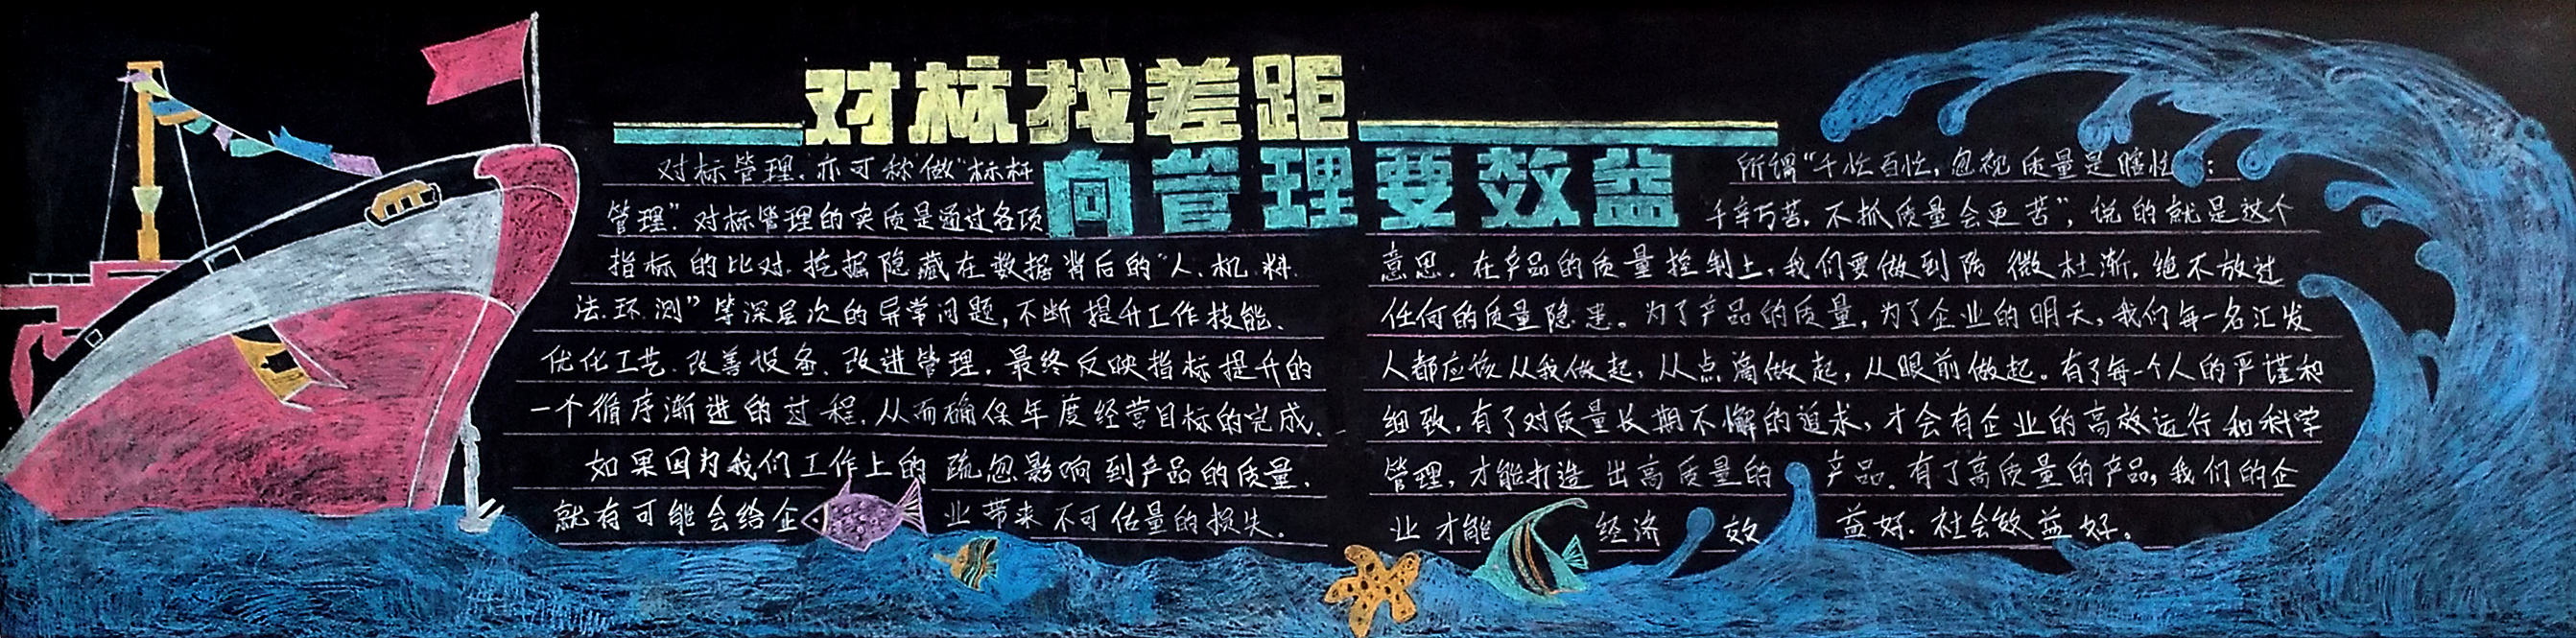 对标找差距
向管理要效益
对标管理、亦可称做“标杆
管理”。对标管理的实质是通过各项
指标的比对、挖掘隐藏在数据背后的“人、机、料、
法、环、测”等深层次的异常问题，不断提升工作技能、
优化工艺、改善设备、改进管理，最终反映指标提升的
一个循序渐进的过程，从而确保年度经营目标的完成。
如果因为我们工作上的疏忽影响到产品的质量，
就有可能会给企业带来不可估量的损失。
所谓“千忙百忙，忽视质量是瞎忙；
千辛万苦，不抓质量会更苦”，说的就是这个
意思。在产品的质量控制上，我们要做到防微杜渐，绝不放过
任何的质量隐患。为了产品的质量，为了企业的明天，我们每一名汇发
人都应该从我做起，从点滴做起，从眼前做起。有了每一个人的严谨和
细致，有了对质量长期不懈的追求，才会有企业的高效运行和科学
管理，才能打造出高质量的产品。有了高质量的产品，我们的企
业才能经济效益好、社会效益好。